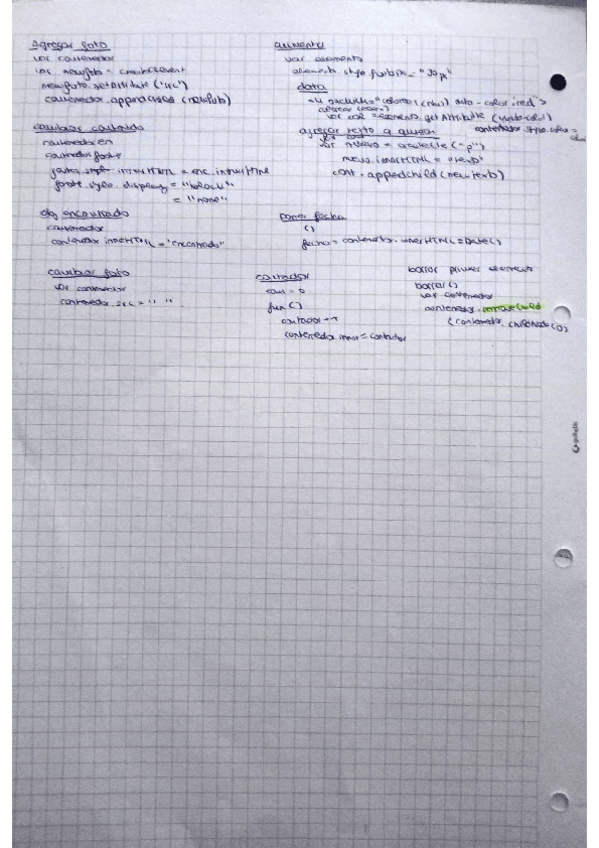 Agregar foto
var contenedor
var newfoto = createElement
newfoto.setAttribute ("src")
contenedor.appendChild (newfoto)
cambiar contenido
contenedor en
contenedor foster
.innerHTML = enc.innerHTML
foster.style.display = "block"
= "none"
obj encontrado
contenedor
contenedor.innerHTML = "encontrado"
cambiar foto
var contenedor
contenedor.src = " "
aumentar
var elemento
elemento.style.fontSize = "30px"
data
data-color: red">
var col = elemento.getAttribute (
agregar texto a
contenedor.style.color =
var nuevo = create ("p")
nuevo.innerHTML = "texto"
cont.appedchild (new texto)
poner fecha
()
fecha = contenedor.innerHTML = Date()
contador
cont = 0
fun ()
contador ++
contenedor.inner = contador
borrar primer elemento
borrar ()
var contenedor
contenedor.removeChild
(contenedor.childNode(0)